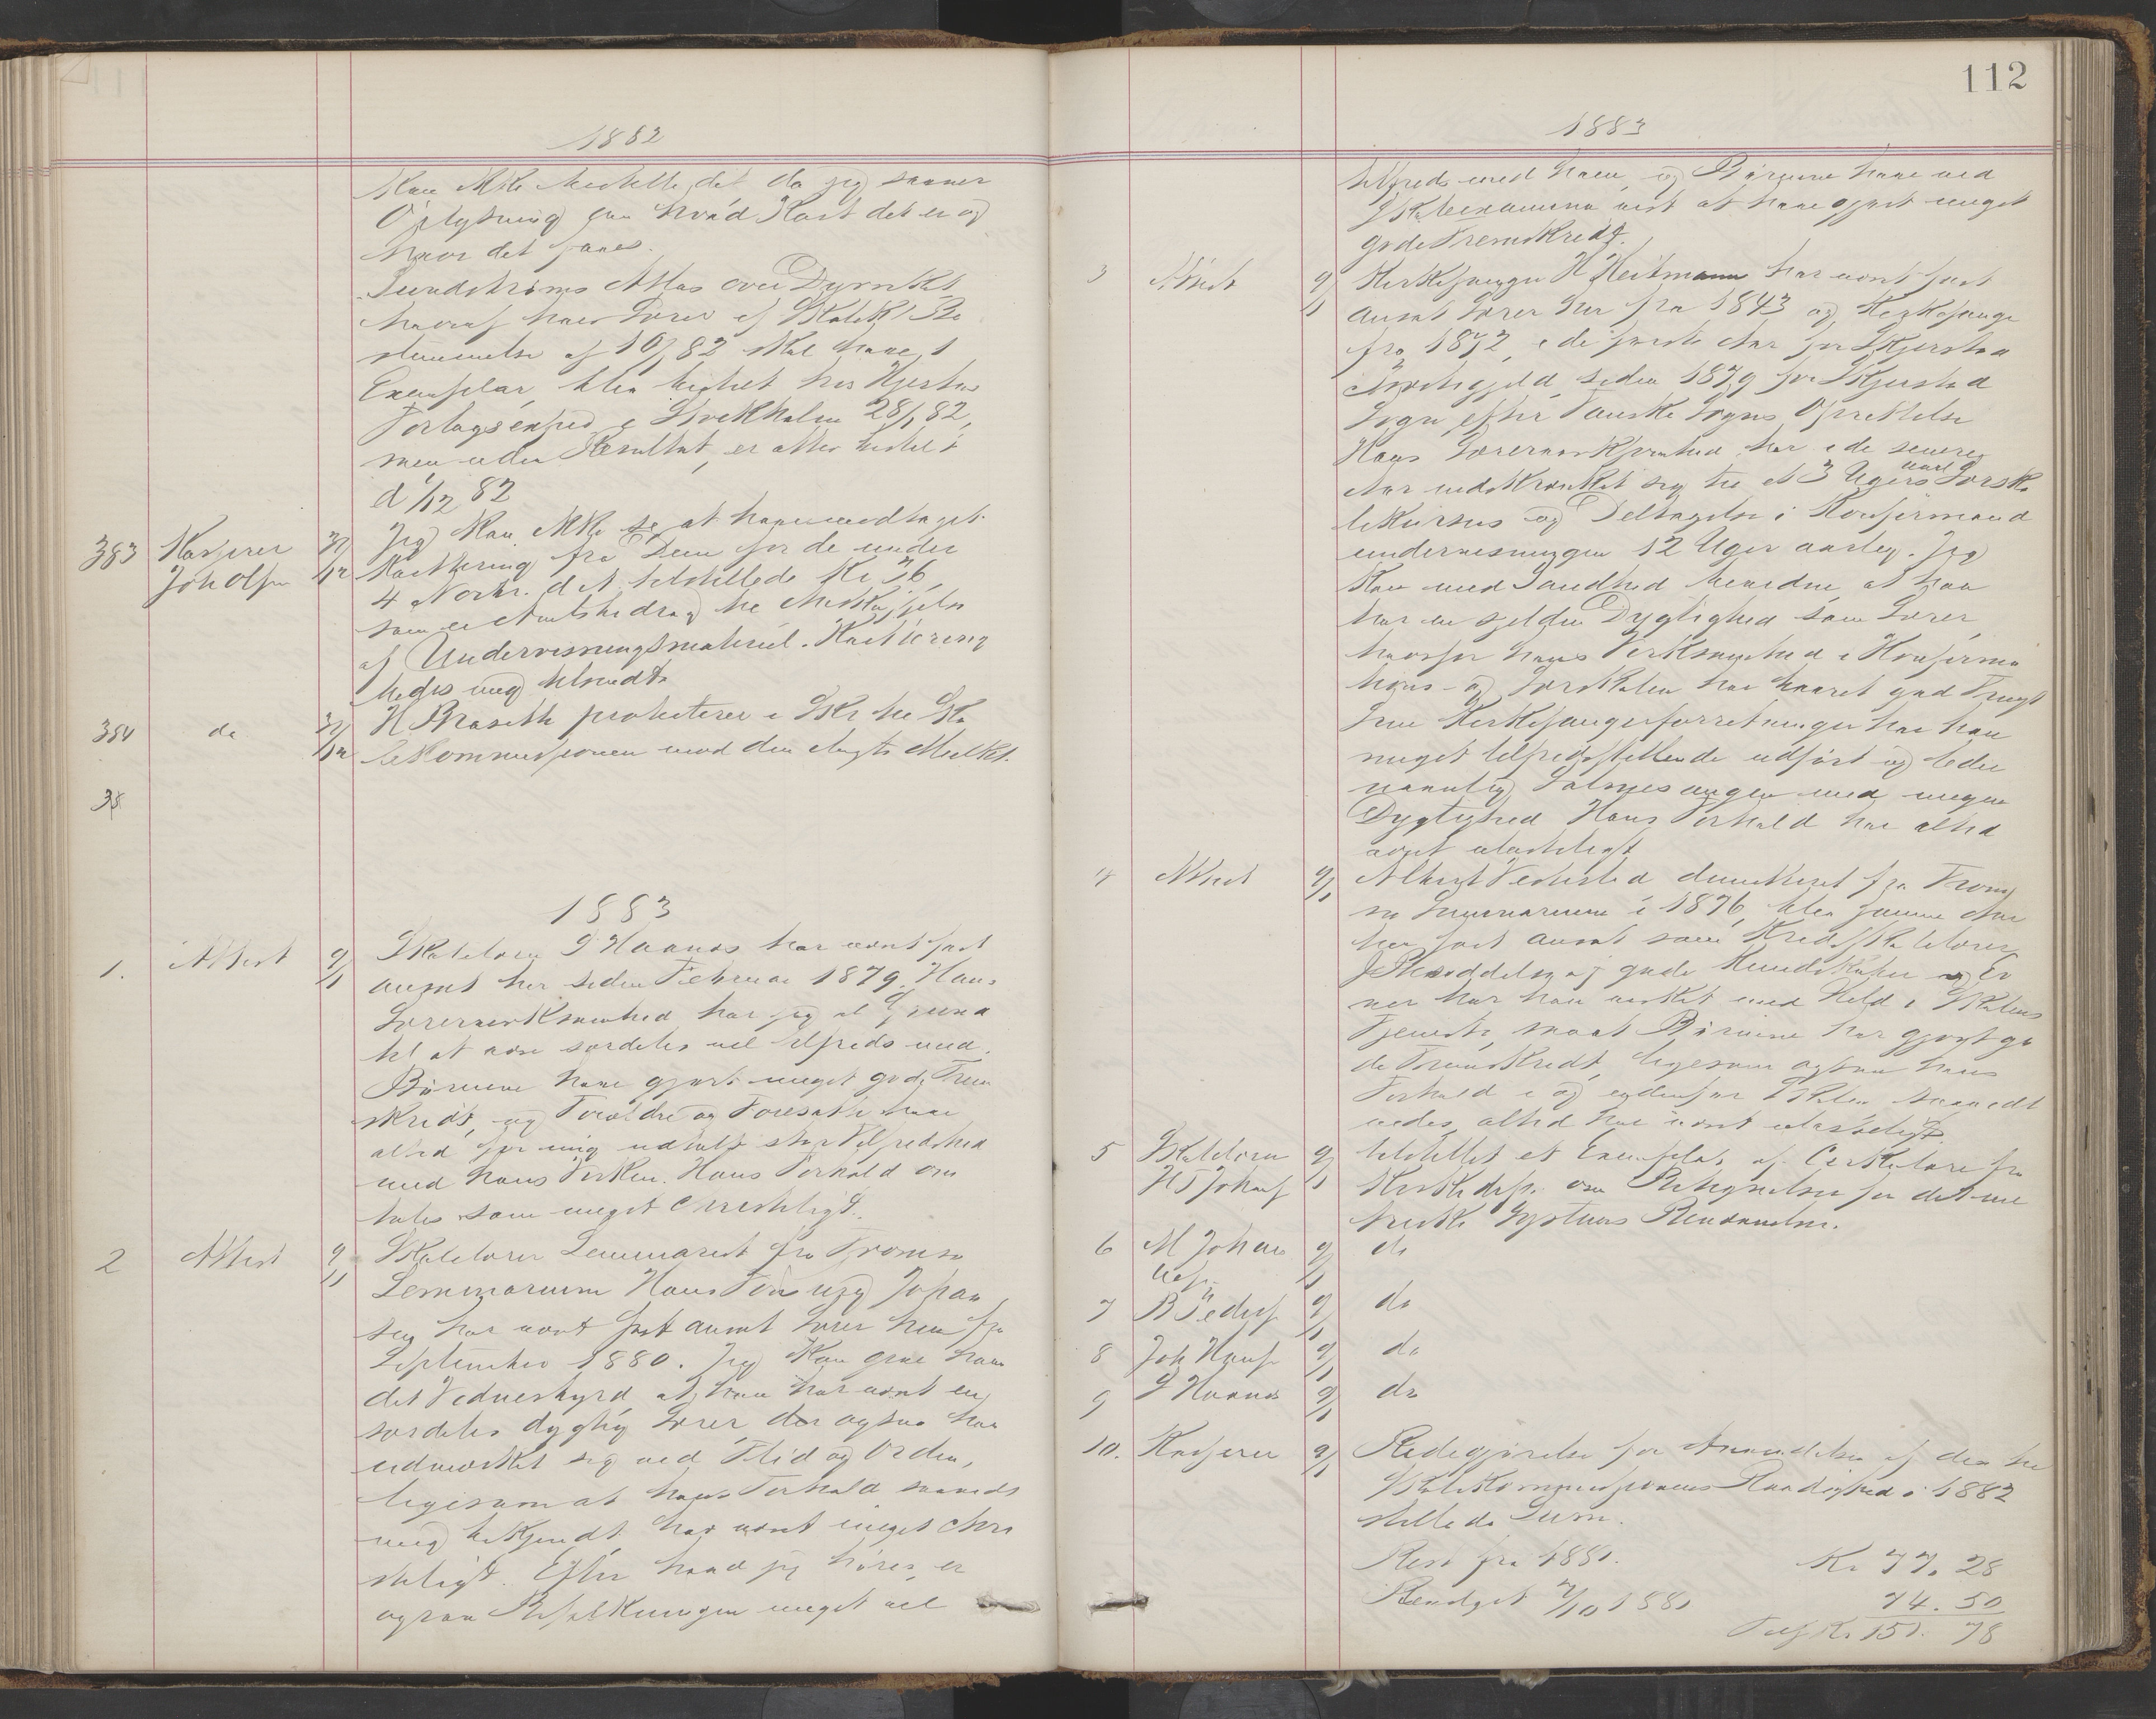 1882
kan ikke bestille det da jeg savner
Oplysning om hvad Kart det er og
hvor det faaes.
Lundstrøms Atlas over Dyrriket
hvoraf hver Lærer ef Skolek. Be
stemmelse af 10/ 82 skal have 1
Exemplar, blev bestilt hos Hjertas
Forlagsexped i Stockholm 28/ 82,
men uden Resultat, er atter bestilt
d 1/12 82
383 Kasserer 31/12 Jeg kan ikke se at have modtaget
Joh Olsen Kvittering fra Dem for de under
4 Novbr. d. A. tilstillede Kr 36,
som er Amtsbidrag til Anskaffelse
af Undervisningsmateriel. Kvittering
bedes mig tilsendt.
384 do 31/12 H Braseth protesterer i Skr til Sko
lekommissionen mod den ilagte Mulkt.
38
1883
1. Attest 9/1 Skolelærer P Haanes har været fast
ansat her siden Februar 1879. Hans
Lærervirksomhed har jeg al Grund
til at være særdeles vel tilfreds med.
Børnene have gjort meget gode Frem
skridt, og Forældre og Foresatte have
altid for mig udtalt stor Tilfredshed
med hans Virken. Hans Forhold om
tales som meget christeligt.
2 Attest 9/1 Skolelærer Seminarist fra Tromsø
Seminarium Hans Johan
sen har været fast ansat Lærer her fra
September 1880. Jeg kan give ham
det Vidnesbyrd, at han har været en
særdeles dygtig Lærer, der ogsaa har
udmærket sig ved Flid og Orden,
ligesom at hans Forhold saavidt
mig bekjendt har været meget chri
steligt. Efter hvad jeg hører, er
ogsaa Befolkningen meget vel
112
1883
tilfreds med ham, og Børnene have ved
Skoleexamina vist at have gjort meget
gode Fremskridt.
3 Attest 9/1 Kirkesanger H Heitmann har været fast
ansat Lærer her fra 1843 og Kirkesanger
fra 1872, i de første Aar for Skjerstad
Præstegjeld, siden 1879 for Skjerstad
Sogn efter Fauske Sogns Oprettelse
Hans Lærervirksomhed har i de senere
Aar indskrænket sig til et 3 Ugers aarl Forsko
lekursus og Deltagelse i Konfirmand
undervisningen 12 Uger aarlig. Jeg
kan med Sandhed bevidne, at han
har en sjelden Dygtighed som Lærer,
hvorfor hans Virksomhed i Konfirma
tions- og Forskolen har baaret god Frugt
Sine Kirkesangerforretninger har han
meget tilfredsstillende udført og leder
navnlig Salmesangen med megen
Dygtighed Hans Forhold har altid
været ulasteligt
4 Attest 9/1 Albert demitteret fra Trom
sø Seminarium i 1876, blev samme Aar
her fast ansat som Kredsskolelærer
I Besiddelse af gode Kundskaber og Ev
ner har han virket med Held i Skolens
Tjeneste, saa at Børnene har gjort go
de Fremskridt, ligesom ogsaa hans
Forhold i og udenfor Skolen saavidt
vides altid har været ulasteligt.
5 Skolelærer 9/1 tilstillet et Exemplar af Cirkulære fra
H F Johans Kirkedep. om Betegnelser for det me
triske Systems Benævnelser.
6 M Johan 9/1 do
nes.
7 B Peders 9/1 do
8 Joh Hans 9/1 do
9 P Haanes 9/1 do
10. Kasserer 9/1 Redegjørelse for Anvendelsen af den til
Skolekommissionens Raadighed i 1882
stillede Sum.
Rest fra 1881. Kr 77. 28
Bevilget 7/10 1881 74. 50
Tils Kr 151. 78